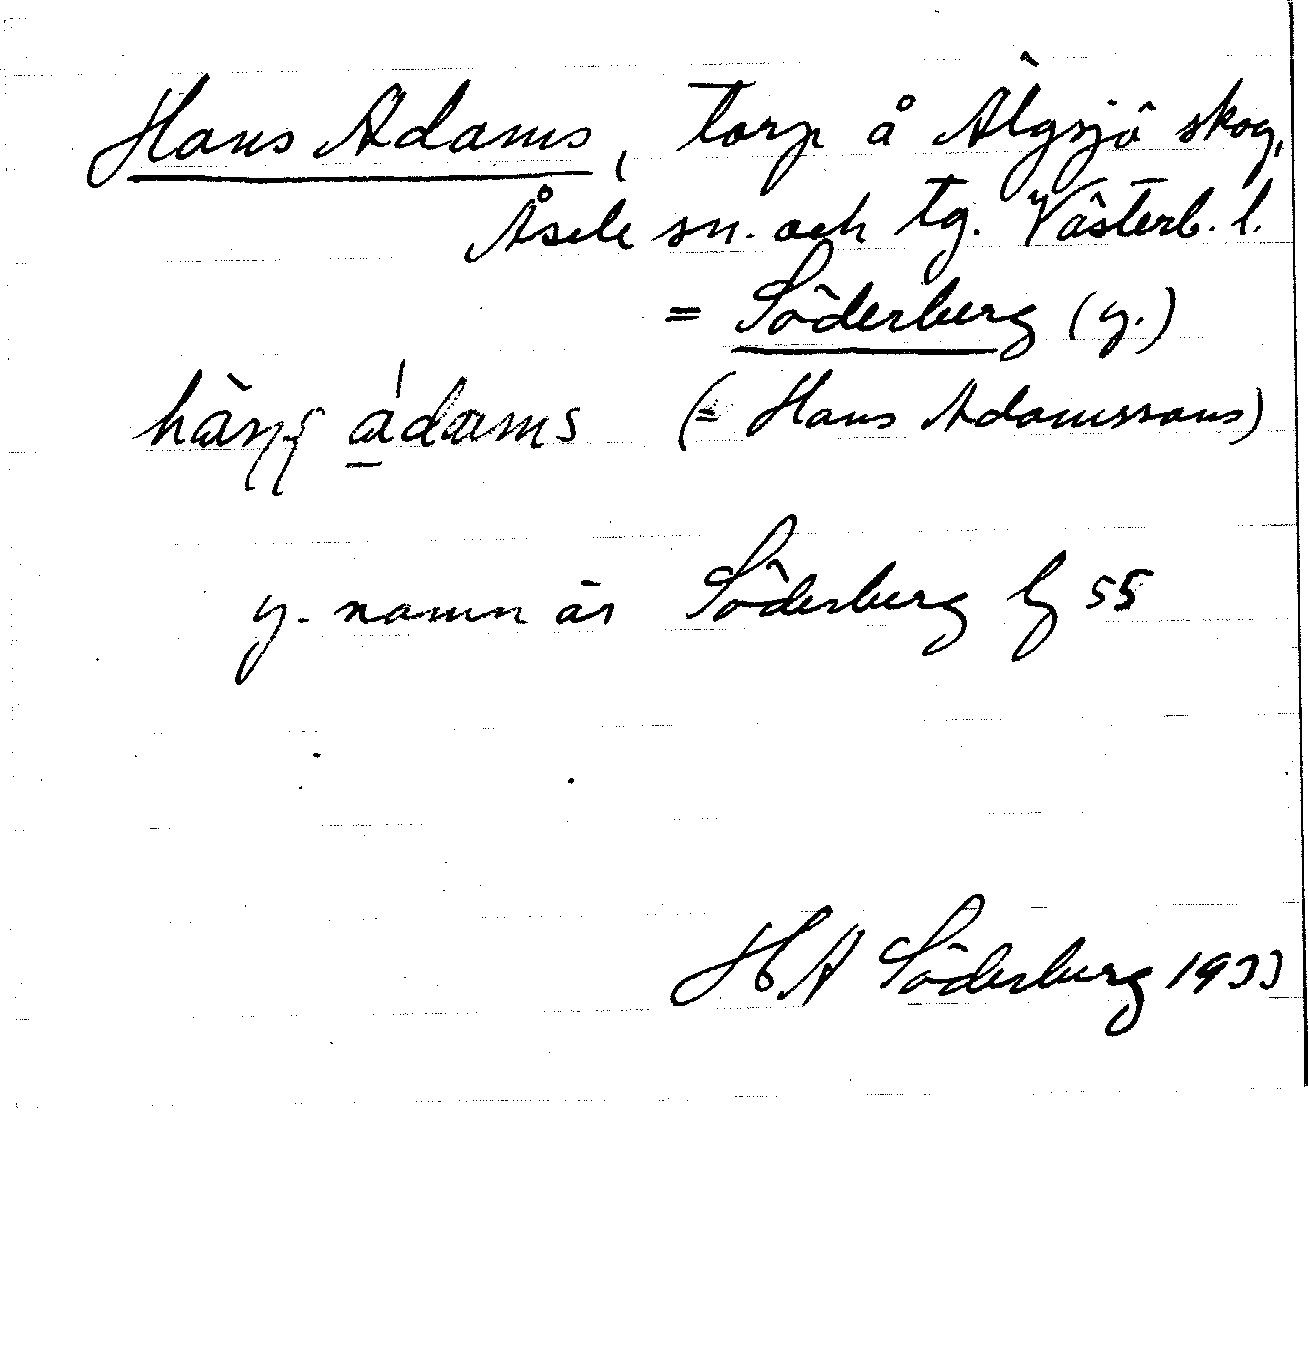 Hans Adams, torp å Älgsjö skog,
Åsele sn. och tg. Västerb. l.
= Söderberg (y.)
hàns ádams (= Hans Adamssons)
y. namn är Söderberg lf 55
H A Söderberg 1933